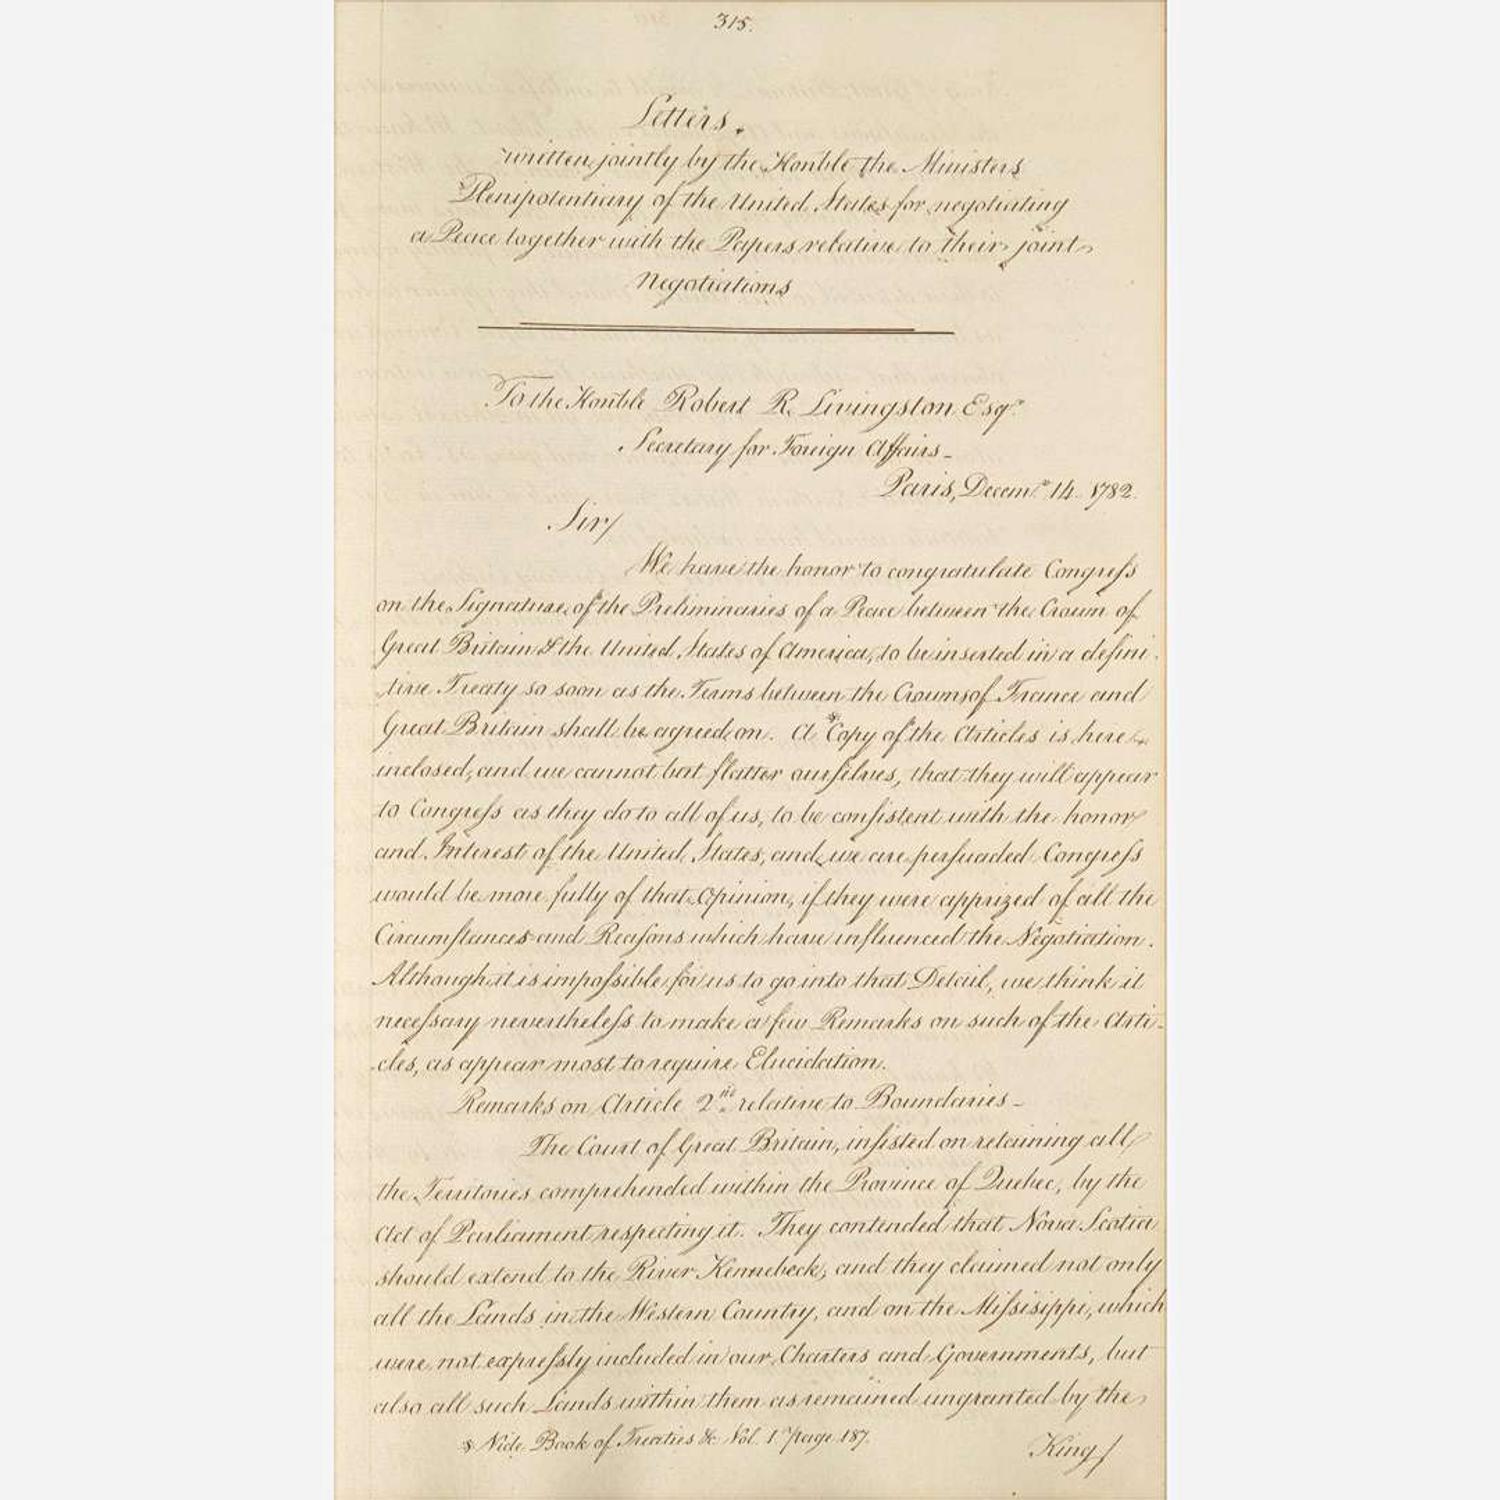 315.
Letters.
written jointly by the Honble the Ministers
Plenipotentiary of the United States for negotiating
a Peace together with the Papers relative to their joint
Negotiations
To the Honble Robert R. Livingston Esqr.
Secretary for Foreign Affairs_
Paris, Decemr. 14. 1782.
Sir/
We have the honor to congratulate Congress
on the Signature of the Preliminaries of a Peace between the Crown of
Great Britain & the United States of America, to be inserted in a defini-
tive Treaty so soon as the Terms between the Crowns of France and
Great Britain shall be agreed on. A *Copy of the Articles is here
inclosed, and we cannot but flatter ourselves, that they will appear
to Congress as they do to all of us, to be consistent with the honor
and Interest of the United States, and we are persuaded Congress
would be more fully of that Opinion, if they were apprized of all the
Circumstances and Reasons which have influenced the Negotiation.
Although it is impossible for us to go into that Detail, we think it
necessary nevertheless to make a few Remarks on such of the Arti-
cles, as appear most to require Elucidation.
Remarks on Article 2nd. relative to Boundaries_
The Court of Great Britain, insisted on retaining all
the Territories comprehended within the Province of Quebec, by the
Act of Parliament respecting it. They contended that Nova Scotia
should extend to the River Kennebeck, and they claimed not only
all the Lands in the Western Country, and on the Missisippi, which
were not expressly included in our Charters and Governments, but
also all such Lands within them as remained ungranted by the
* Vide Book of Treaties &c Vol. 1st page 187.
King/